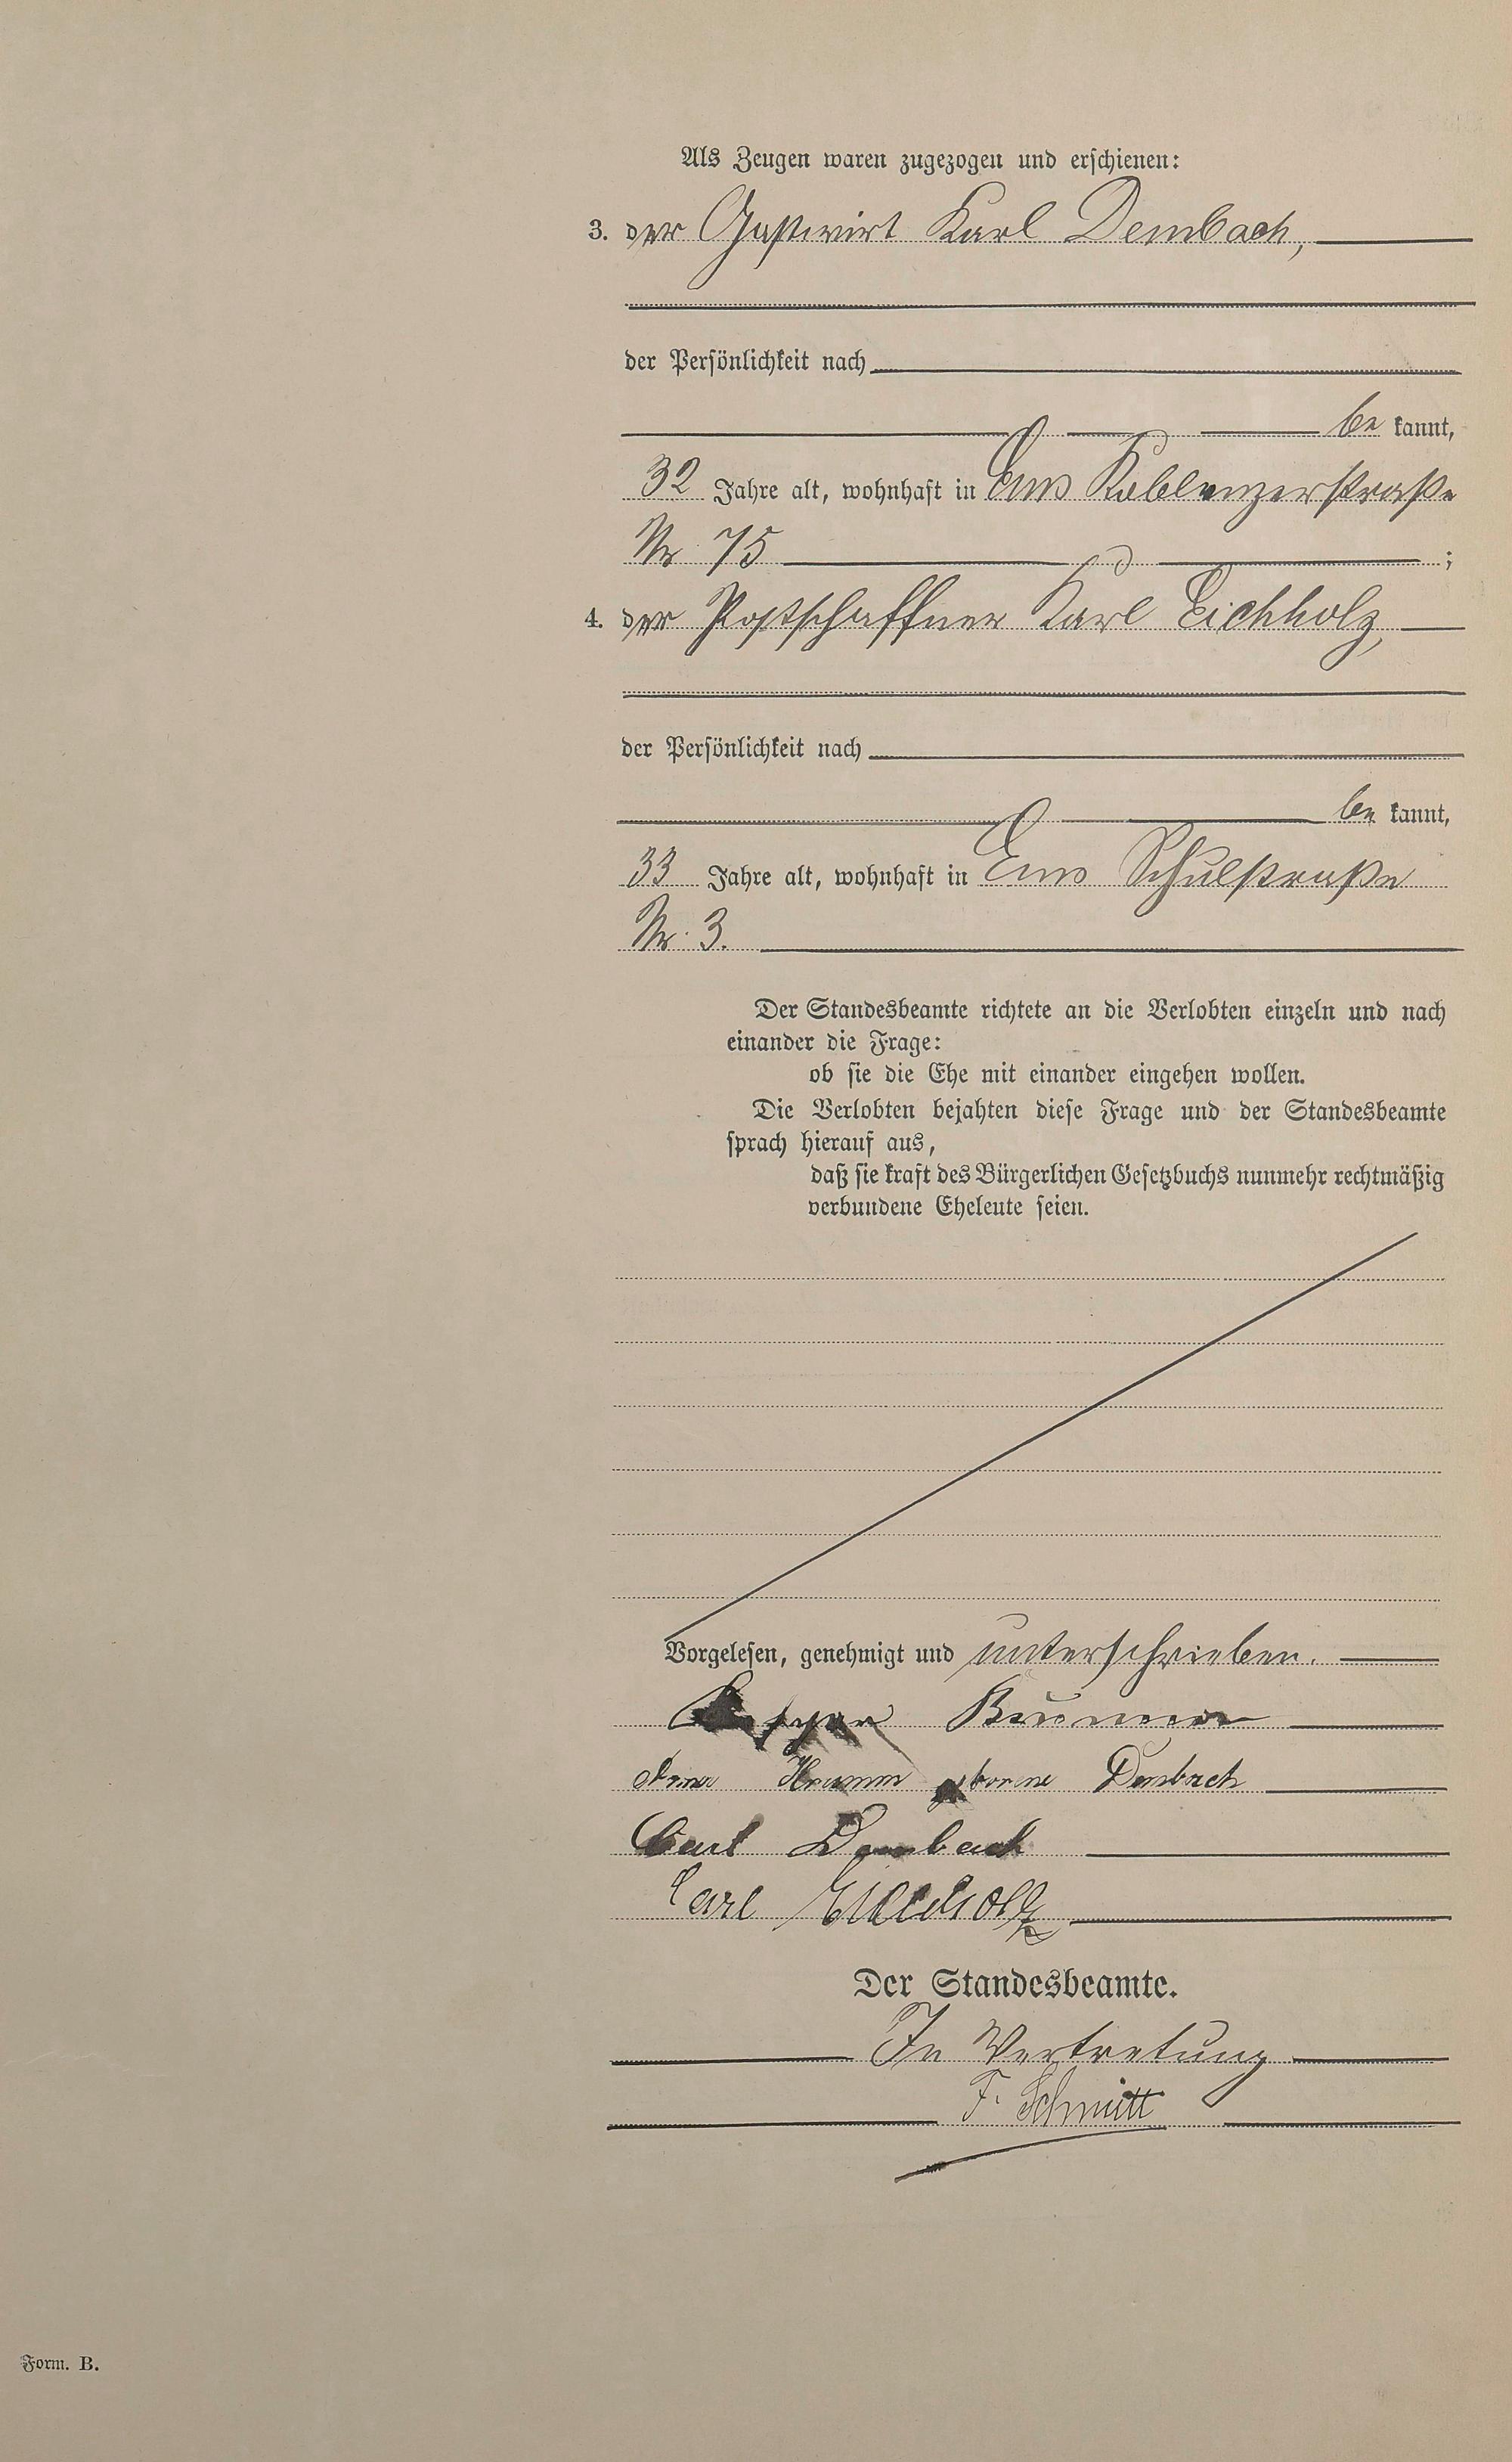 Als Zeugen waren zugezogen und erschienen:
3. der Gastwirt Karl Dembach,
der Persönlichkeit nach
be kannt,
32 Jahre alt, wohnhaft in Ems Koblenzerstraße
Nr. 75 ;
4. der Postschaffner Karl Eichholz,
der Persönlichkeit nach
be kannt,
33 Jahre alt, wohnhaft in Ems Schulstraße
Nr. 3.
Der Standesbeamte richtete an die Verlobten einzeln und nach
einander die Frage:
ob sie die Ehe mit einander eingehen wollen.
Die Verlobten bejahten diese Frage und der Standesbeamte
sprach hierauf aus,
daß sie kraft des Bürgerlichen Gesetzbuchs nunmehr rechtmäßig
verbundene Eheleute seien.
Vorgelesen, genehmigt und unterschrieben.
Anna Krumm geborene Dembach
Carl Dembach
Carl Eichholz
Der Standesbeamte.
In Vertretung
F. Schmitt
Form. B.